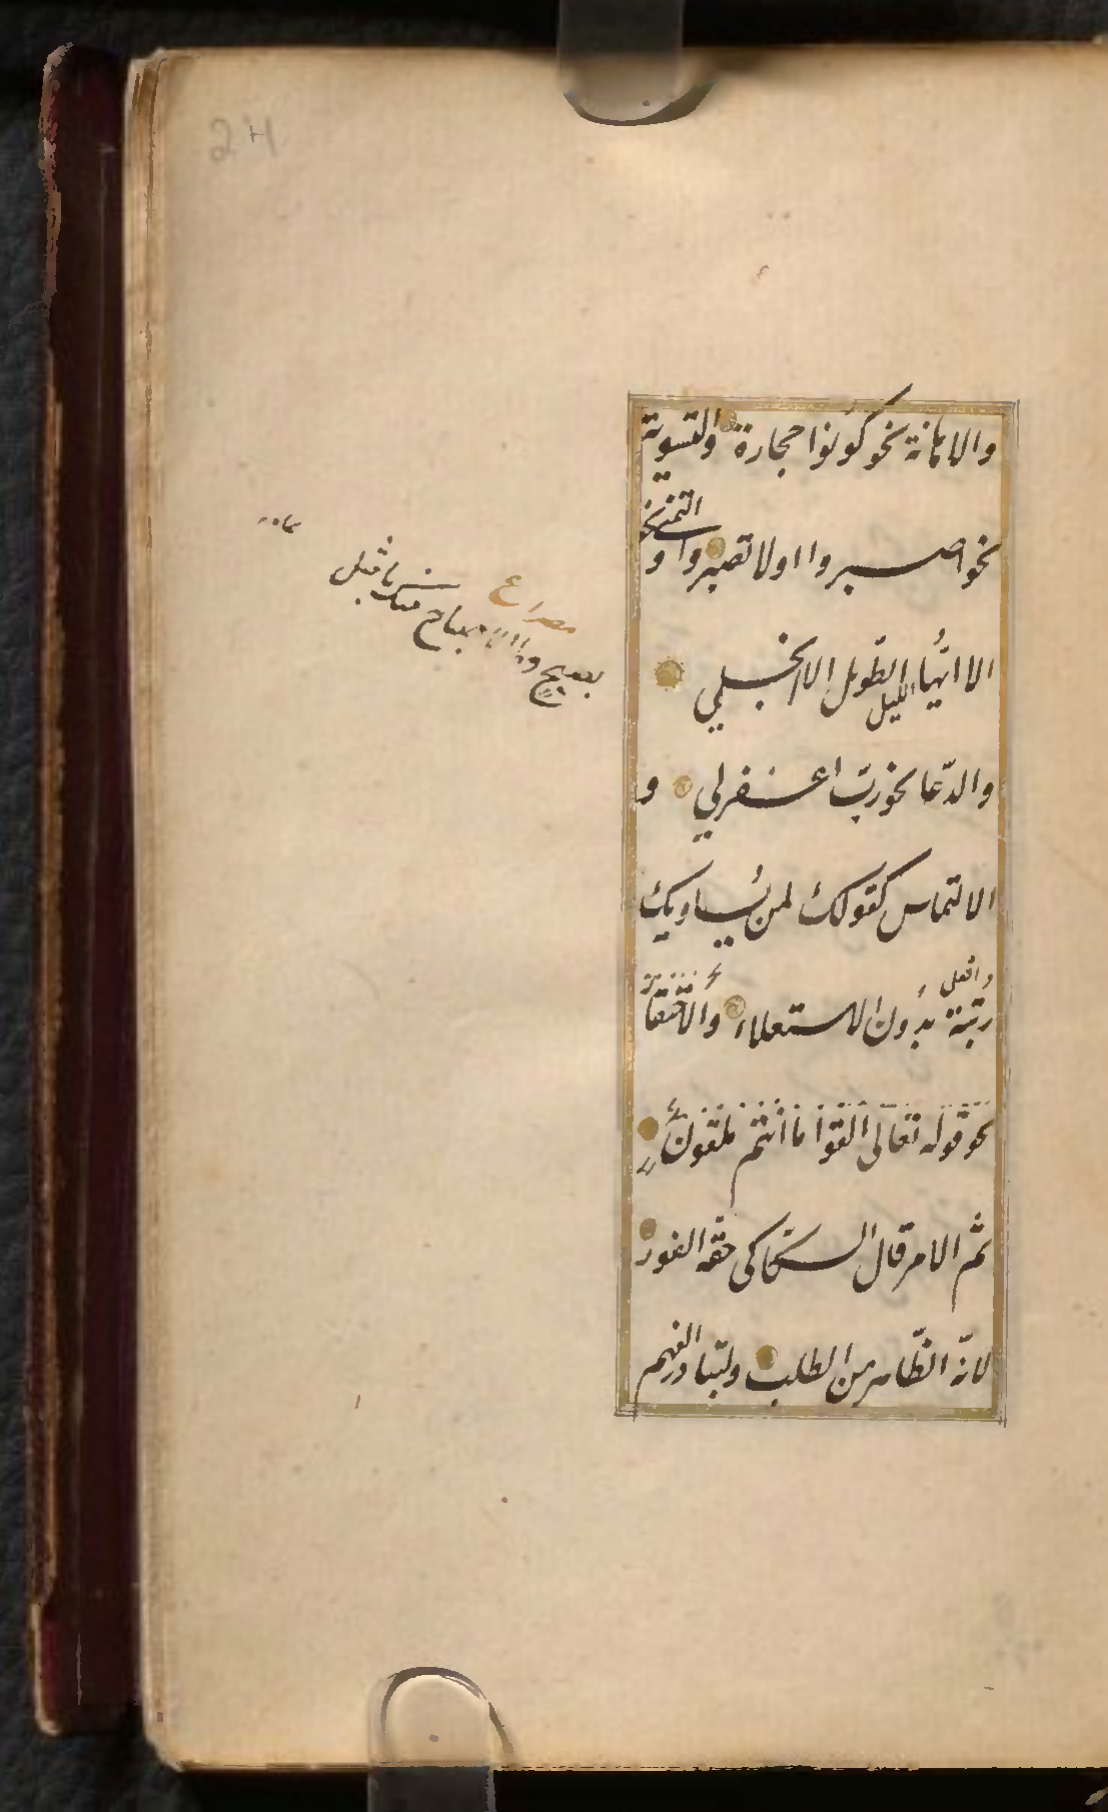 24
والاهانة نحو كونوا حجارة والتسوية
نحو اصبروا اولا تصبروا و التمني نحو
الا ايها الليل الطويل الا انجلي
والدّعا نحو ربّ اغفر لي و
الالتماس كقولك لمن يُساويك
رتبة افعل بدُون الاستعلاء والاحتقار
نحو قوله تعالى القوا ما انتم ملقون
ثم الامر قال السكّاكى حقه الفور
لانّه الظّاهر من الطلب ولتبادر الفهم
مصراع
بصبح وما الاصباح منك بامثل